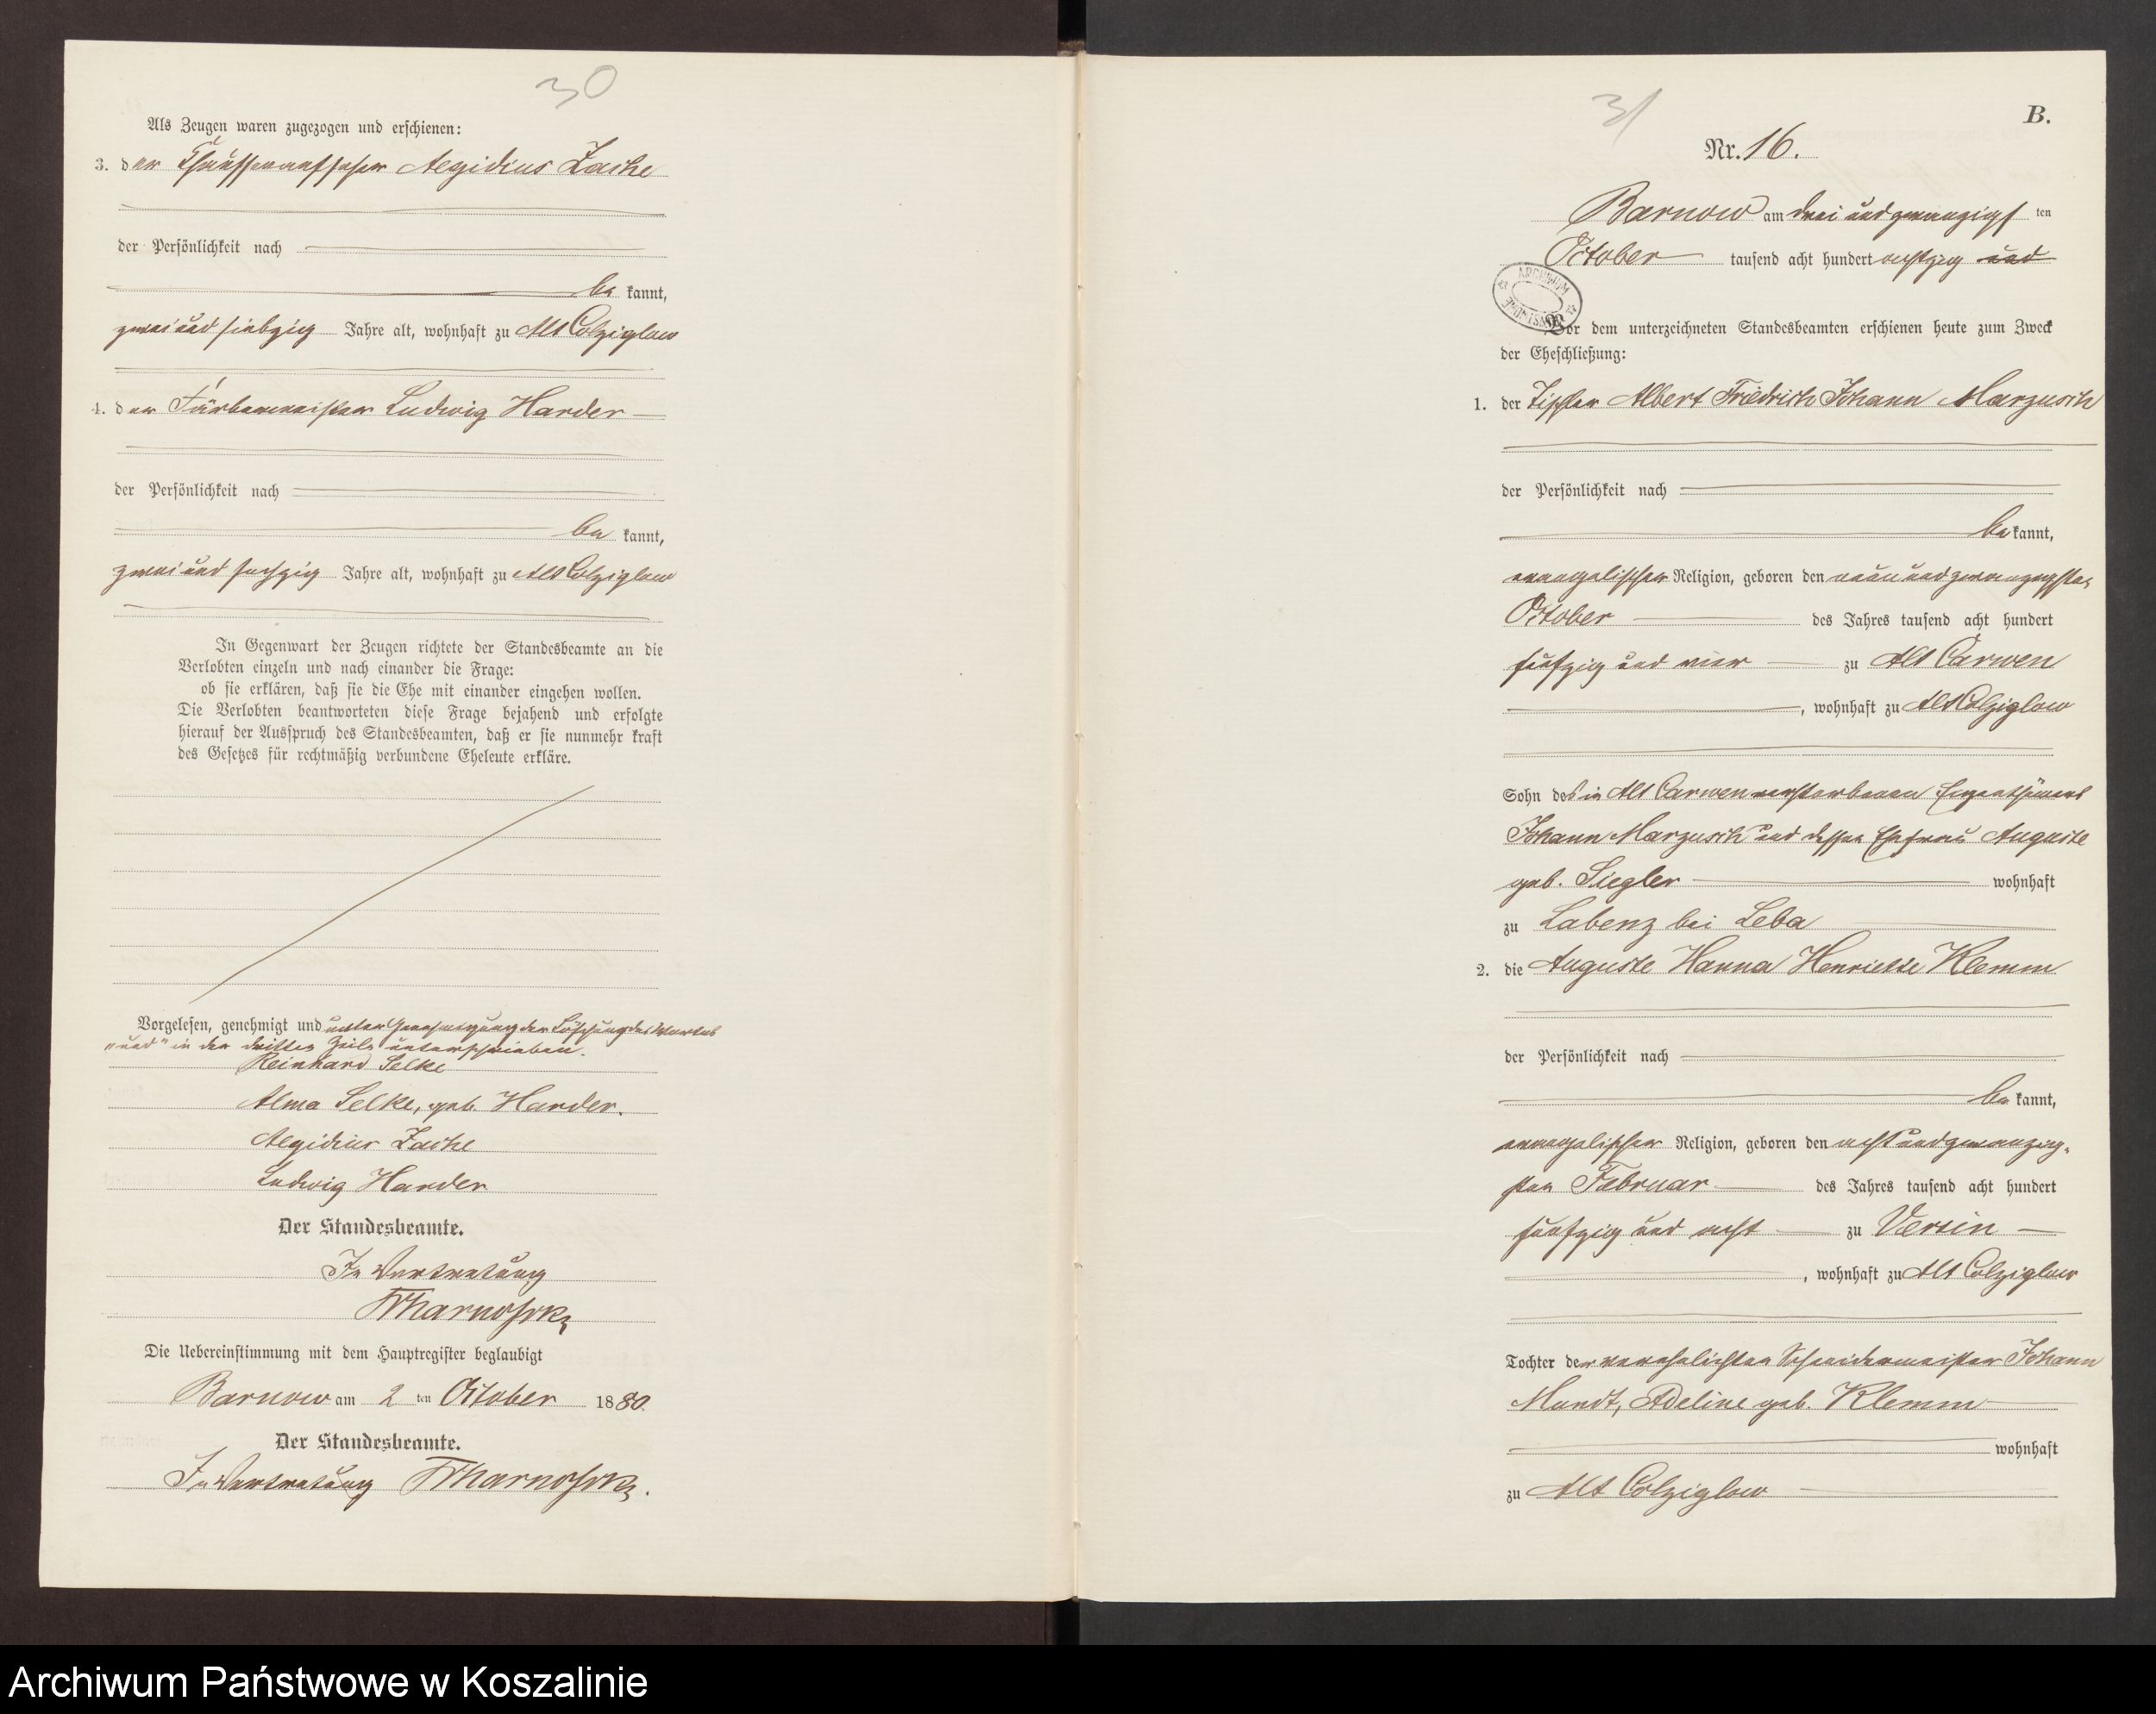 30
Als Zeugen waren zugezogen und erschienen:
3. der Chausseeaufseher Aegidius Zache
der Persönlichkeit nach
be kannt,
zwei und siebzig Jahre alt, wohnhaft zu Alt Colziglow
4. der Färbermeister Ludwig Harder
der Persönlichkeit nach
be kannt,
zwei und sechzig Jahre alt, wohnhaft zu Alt Colziglow
In Gegenwart der Zeugen richtete der Standesbeamte an die
Verlobten einzeln und nach einander die Frage:
ob sie erklären, daß sie die Ehe mit einander eingehen wollen.
Die Verlobten beantworteten diese Frage bejahend und erfolgte
hierauf der Ausspruch des Standesbeamten, daß er sie nunmehr kraft
des Gesetzes für rechtmäßig verbundene Eheleute erkläre.
Vorgelesen, genehmigt und unter Genehmigung der Löschung des Wortes
"und" in der dritten Zeile unterschrieben.
Reinhard Selke
Alma Selke, geb. Harder.
Aegidius Zache
Ludwig Harder
Der Standesbeamte.
In Vertretung
Die Uebereinstimmung mit dem Hauptregister beglaubigt
Barnow am 2 ten October 1880.
Der Standesbeamte.
In Vertretung
31
B.
Nr. 16.
Barnow am drei und zwanzigs ten
October tausend acht hundert achtzig und
ARCHIWUM
Vor dem unterzeichneten Standesbeamten erschienen heute zum Zweck
der Eheschließung:
1. der Albert Friedrich Johann Marzusch
der Persönlichkeit nach
be kannt,
evangelischer Religion, geboren den neun und zwanzigsten
October des Jahres tausend acht hundert
fünfzig und vier zu Alt Carwen
, wohnhaft zu Alt Colziglow
Sohn des in Alt Carwen verstorbenen Eigenthümers
Johann Marzusch und dessen Ehefrau Auguste
geb. Siegler wohnhaft
zu Labenz bei Leba
2. die Auguste Hanna Henriette Klemm
der Persönlichkeit nach
be kannt,
evangelischer Religion, geboren den acht und zwanzig-
sten Februar des Jahres tausend acht hundert
fünfzig und acht zu Versin
, wohnhaft zu Alt Colziglow
Tochter der verehelichten Schneidermeister Johann
Mundt, Adeline geb. Klemm
wohnhaft
zu Alt Colziglow
Archiwum Państwowe w Koszalinie